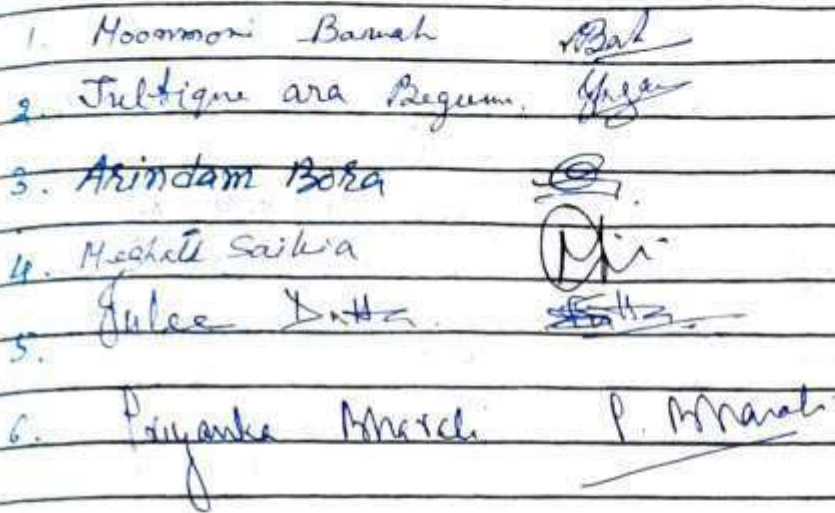 1. Moonmoni Baruah
2. Julfique ara Begum.
3. Arindam Bora
4. Meghali Saikia
5. Julee Dutta.
6. Priyanka Bharali P. Bharali